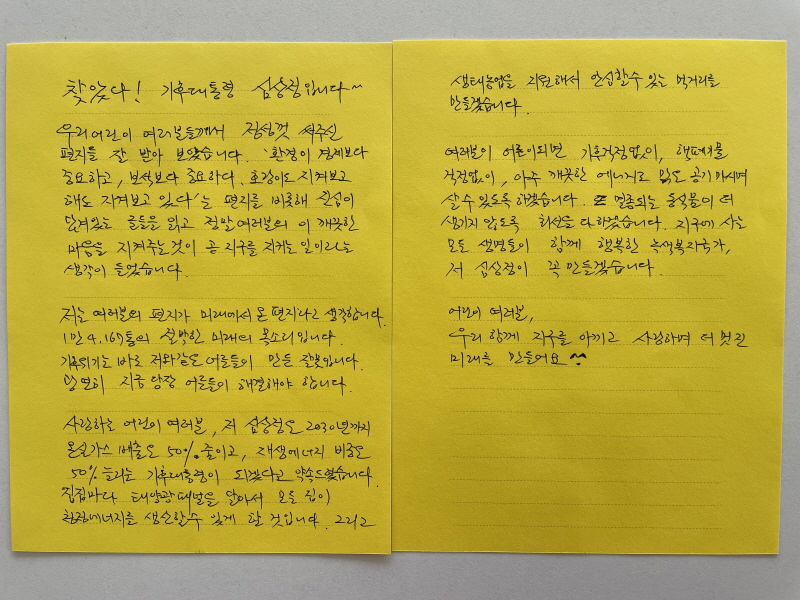 찾았다! 기후대통령 심상정입니다~
우리 어린이 여러분들께서 정성껏 써주신
편지를 잘 받아 보았습니다. '환경이 경제보다
중요하고, 보석보다 중요하다. 호랑이도 지켜보고
해도 지켜보고 있다'는 편지를 비롯해 진심이
담겨있는 글들을 읽고 정말 여러분의 이 깨끗한
마음을 지켜주는것이 곧 지구를 지키는 일이라는
생각이 들었습니다.
저는 여러분의 편지가 미래에서 온 편지라고 생각합니다.
1만 4,167통의 절박한 미래의 목소리입니다.
기후위기는 바로 저와같은 어른들이 만든 잘못입니다.
당연히 지금 당장 어른들이 해결해야 합니다.
사랑하는 어린이 여러분, 저 심상정은 2030년까지
온실가스 배출도 50% 줄이고, 재생에너지 비중도
50% 늘리는 기후대통령이 되겠다고 약속드렸습니다.
집집마다 태양광패널을 달아서 모든 집이
청정에너지를 생산할수 있게 할 것입니다. 그리고
생태농업을 지원해서 안심할수 있는 먹거리를
만들겠습니다.
여러분이 어른이되면 기후걱정없이, 핵폐기물
걱정없이, 아주 깨끗한 에너지로 맑은 공기 마시며
살 수 있도록 하겠습니다. 또 멸종되는 동식물이 더
생기지 않도록 최선을 다하겠습니다. 지구에 사는
모든 생명들이 함께 행복한 녹색복지국가,
저 심상정이 꼭 만들겠습니다.
어린이 여러분,
우리 함께 지구를 아끼고 사랑하며 더 멋진
미래를 만들어요 ^^